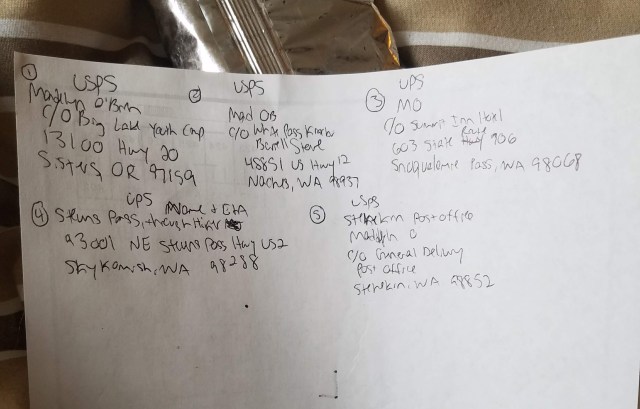 ① USPS
Madilyn O'Brien
C/O Big Lake Youth Camp
13100 Hwy 20
Sisters, OR 97759
② USPS
Mad OB
C/O White Pass Kracker
Barrell Store
48851 US Hwy 12
Naches, WA 98937
③ UPS
MO
C/O Summit Inn Hotel
603 State Route 906
Snoqualmie Pass, WA 98068
④ UPS Name + ETA
Stevens Pass, through Hiker
93001 NE Stevens Pass Hwy US2
Skykomish, WA 98288
⑤ USPS
Stehekin Post office
Madilyn O
C/O General Delivery
Post Office
Stehekin, WA 98852